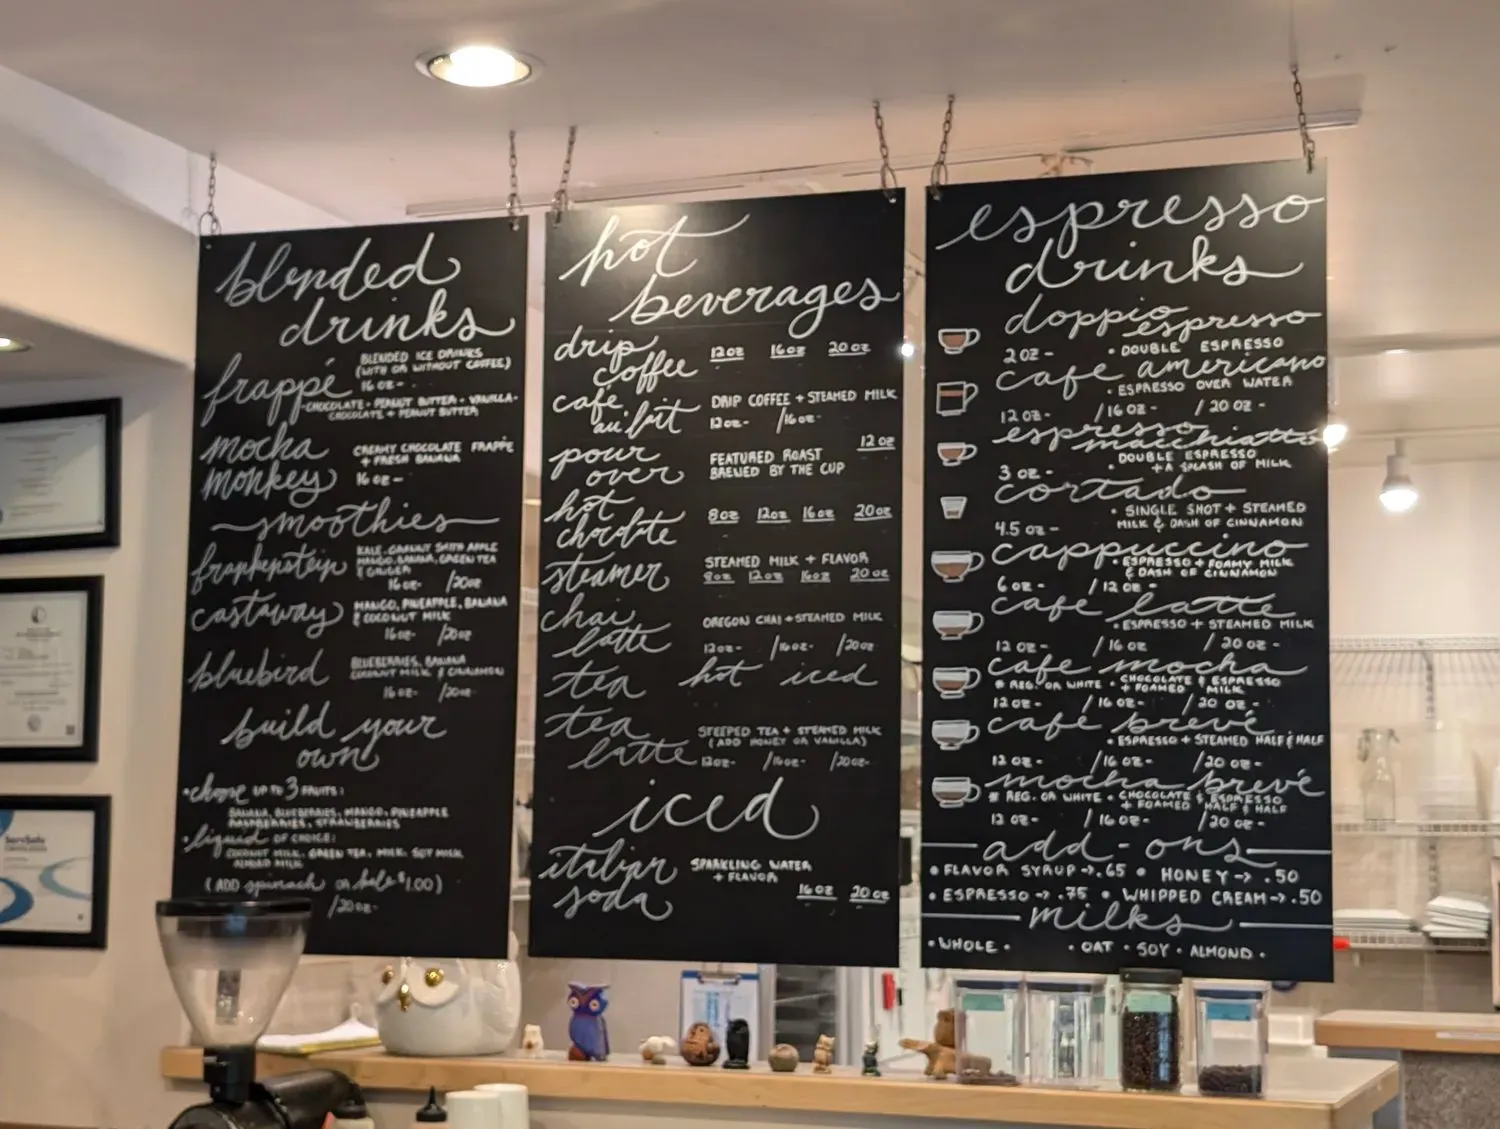 blended
drinks
frappé
BLENDED ICE DRINKS
(WITH OR WITHOUT COFFEE)
16 OZ -
-CHOCOLATE - PEANUT BUTTER - VANILLA -
CHOCOLATE + PEANUT BUTTER
mocha
monkey
CREAMY CHOCOLATE FRAPPE
+ FRESH BANANA
16 OZ -
smoothies
frankenstein
KALE, GRANNY SMITH APPLE
MANGO, BANANA, GREEN TEA
& GINGER
16 OZ- /20OZ-
castaway
MANGO, PINEAPPLE, BANANA
& COCONUT MILK
16OZ- /20OZ
bluebird
BLUEBERRIES, BANANA
COCONUT MILK & CINNAMON
16 OZ- /20OZ-
build your
own
• choose UP TO 3 FRUITS:
BANANA, BLUEBERRIES, MANGO, PINEAPPLE
RASPBERRIES, STRAWBERRIES
• liquid OF CHOICE:
COCONUT MILK, GREEN TEA, MILK, SOY MILK
ALMOND MILK
(ADD spinach OR kale $1.00)
/20OZ-
hot
beverages
drip
coffee
12OZ 16OZ 20OZ
café
au lait
DRIP COFFEE + STEAMED MILK
12OZ- /16OZ-
pour
over
12OZ
FEATURED ROAST
BREWED BY THE CUP
hot
chocolate
8OZ 12OZ 16OZ 20OZ
steamer
STEAMED MILK + FLAVOR
8OZ 12OZ 16OZ 20OZ
chai
latte
OREGON CHAI + STEAMED MILK
12OZ- /16OZ- /20OZ
tea hot iced
tea
latte
STEEPED TEA + STEAMED MILK
(ADD HONEY OR VANILLA)
12OZ- /16OZ- /20OZ
iced
italian
soda
SPARKLING WATER
+ FLAVOR
16OZ 20OZ
espresso
drinks
doppio espresso
2OZ - • DOUBLE ESPRESSO
café americano
• ESPRESSO OVER WATER
12 OZ- /16 OZ- /20 OZ-
espresso macchiatto
DOUBLE ESPRESSO
+ A SPLASH OF MILK
3 OZ -
cortado
• SINGLE SHOT + STEAMED
MILK & DASH OF CINNAMON
4.5 OZ -
cappuccino
• ESPRESSO + FOAMY MILK
& DASH OF CINNAMON
6 OZ - /12 OZ -
café latte
• ESPRESSO + STEAMED MILK
12 OZ - /16 OZ /20 OZ -
café mocha
* REG. OR WHITE • CHOCOLATE & ESPRESSO
+ FOAMED MILK
12 OZ - /16 OZ - /20 OZ -
café brevé
• ESPRESSO + STEAMED HALF & HALF
12 OZ - /16 OZ - /20 OZ -
mocha brevé
* REG. OR WHITE • CHOCOLATE & ESPRESSO
+ FOAMED HALF & HALF
12 OZ - /16 OZ - /20 OZ -
add-ons
• FLAVOR SYRUP → .65 • HONEY → .50
• ESPRESSO → .75 • WHIPPED CREAM → .50
milks
• WHOLE • • OAT • SOY • ALMOND •
ServSafe